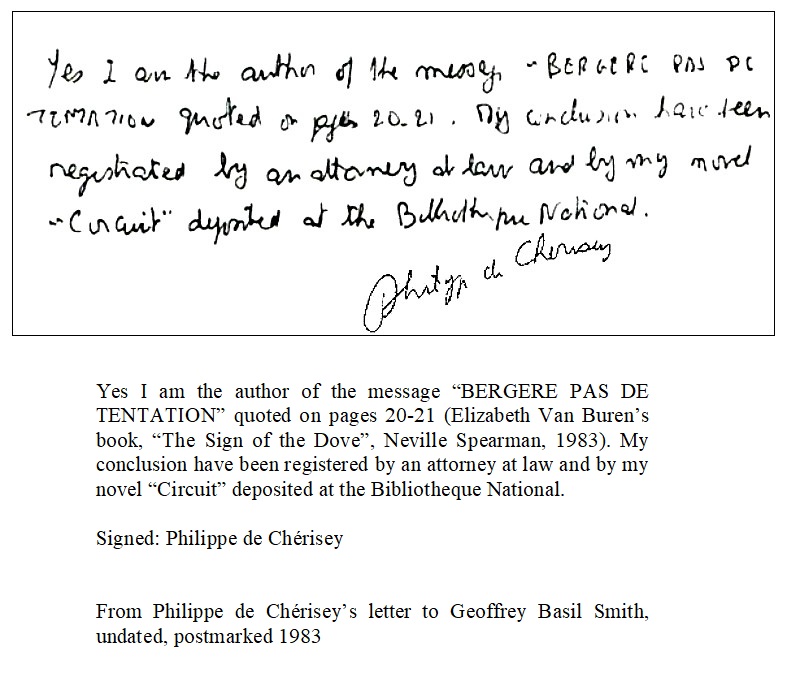 Yes I am the author of the message "BERGERE PAS DE
TENTATION quoted on pages 20-21. My conclusion have been
registrated by an attorney at law and by my novel
"Circuit" deposited at the Bibliotheque National.
Philippe de Cherisey
Yes I am the author of the message “BERGERE PAS DE
TENTATION” quoted on pages 20-21 (Elizabeth Van Buren’s
book, “The Sign of the Dove”, Neville Spearman, 1983). My
conclusion have been registered by an attorney at law and by my
novel “Circuit” deposited at the Bibliotheque National.
Signed: Philippe de Chérisey
From Philippe de Chérisey’s letter to Geoffrey Basil Smith,
undated, postmarked 1983